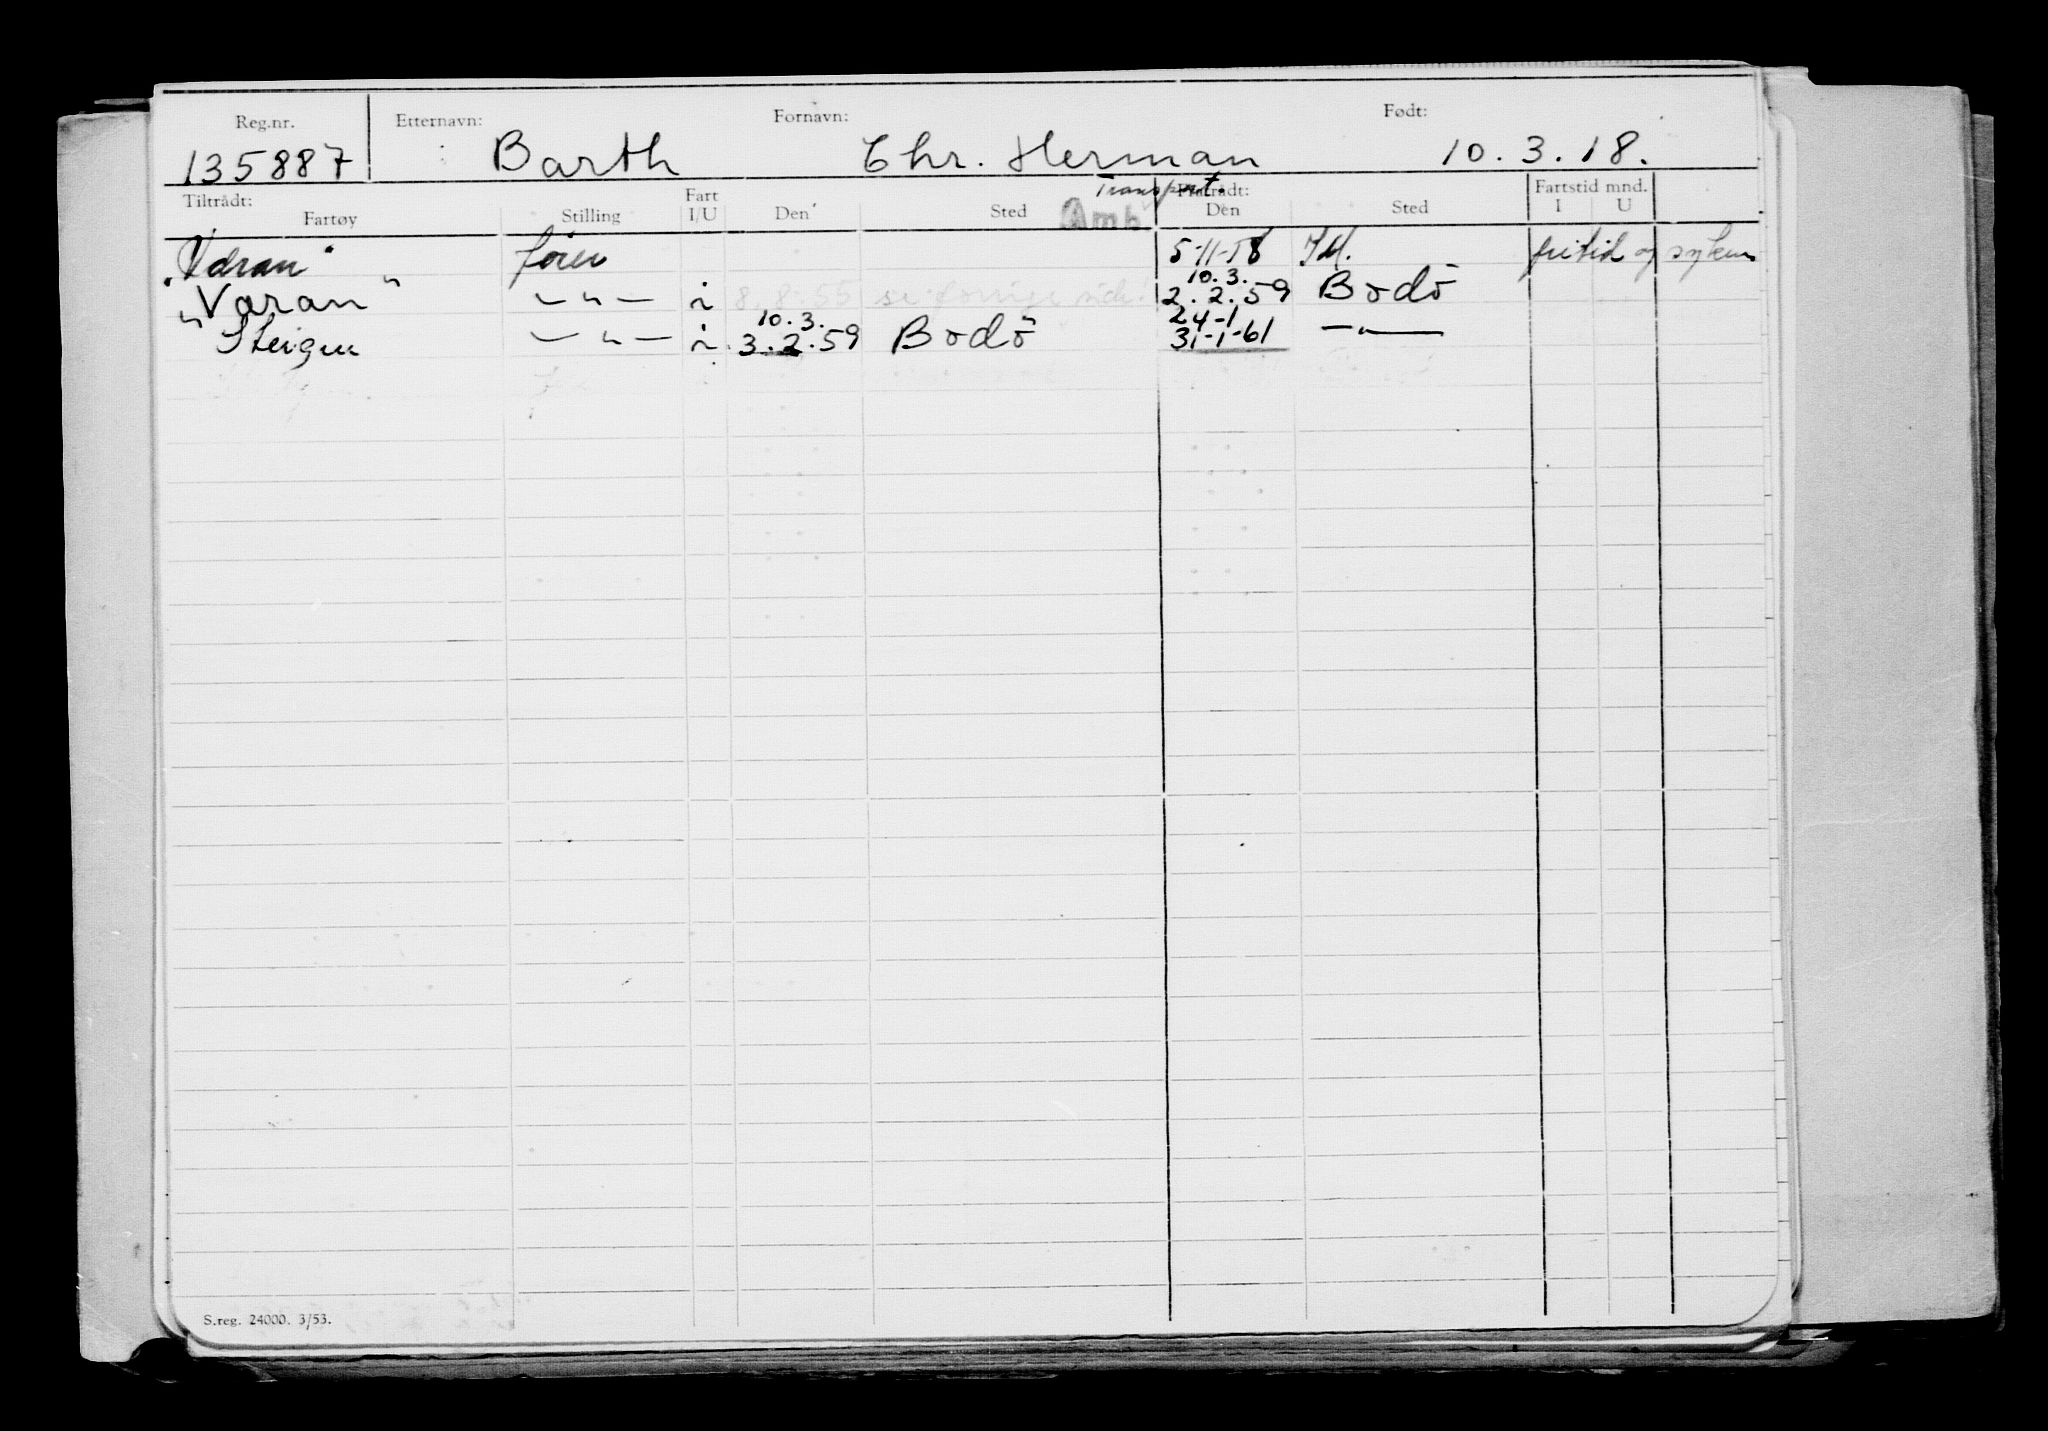 Reg.nr. Etternavn: Fornavn: Født:
135887 Barth Chr. Herman 10.3.18.
Transport.
Tiltrådt: Fart Fratrådt: Fartstid mnd.
Fartøy Stilling I/U Den Sted Den Sted I U
Amb
"Varan" fører 5-11-58 fritid og
10.3.
"Varan" — " — i 8.8.55 se forrige side! 2.2.59 Bodö
10.3. 24-1
Steigen — " — i 3.2.59 Bodö 31-1-61 — " —
S.reg. 24000. 3/53.